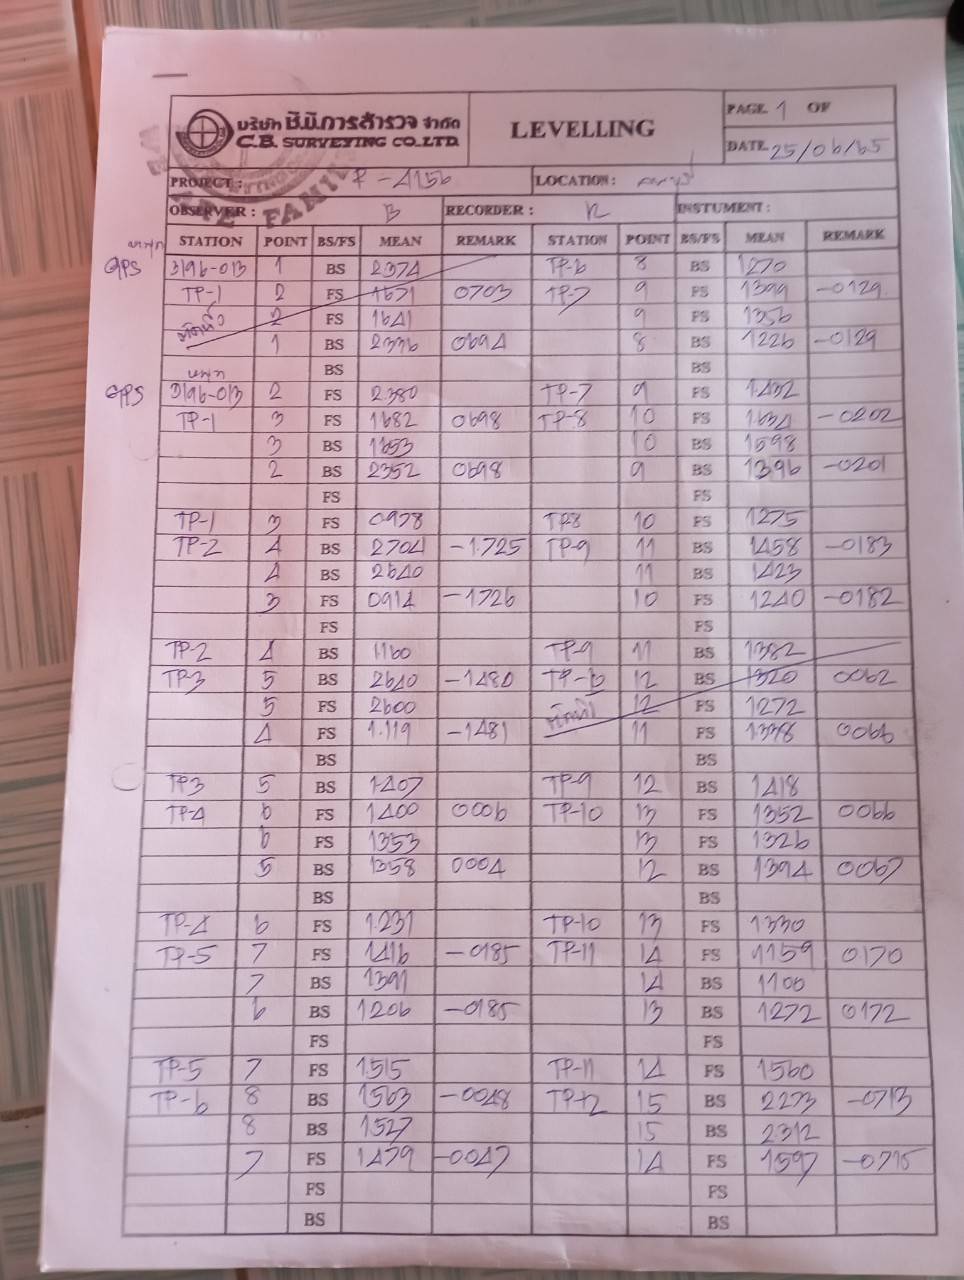 บริษัท ซี.บี.การสำรวจ จำกัด
C.B. SURVEYING CO.,LTD.
LEVELLING
PAGE. 1 OF
DATE. 25/06/65
PROJECT: R-4156 LOCATION:
OBSERVER: B RECORDER: R INSTUMENT:
STATION POINT BS/FS MEAN REMARK STATION POINT BS/FS MEAN REMARK
GPS 3196-013 1 BS 2374 TP-6 8 BS 1270
TP-1 2 FS 1671 0703 TP-7 9 FS 1399 -0129
2 FS 1641 9 FS 1356
1 BS 2336 0694 8 BS 1226 -0129
BS BS
GPS 3196-013 2 FS 2.380 TP-7 9 FS 1.432
TP-1 3 FS 1682 0698 TP-8 10 FS 1.634 -0202
3 BS 1653 10 BS 1598
2 BS 2352 0698 9 BS 1396 -0201
FS FS
TP-1 3 FS 0978 TP8 10 FS 1275
TP-2 4 BS 2704 -1.725 TP-9 11 BS 1458 -0183
4 BS 2640 11 BS 1423
3 FS 0914 -1726 10 FS 1240 -0182
FS FS
TP-2 4 BS 1160 TP-9 11 BS 1382
TP-3 5 BS 2640 -1480 TP-10 12 BS 1320 0062
5 FS 2600 12 FS 1272
4 FS 1.119 -1481 11 FS 1338 0066
BS BS
TP3 5 BS 1407 TP-9 12 BS 1418
TP-4 6 FS 1400 0006 TP-10 13 FS 1352 0066
6 FS 1353 13 FS 1326
5 BS 1358 0004 12 BS 1394 0067
BS BS
TP-4 6 FS 1.231 TP-10 13 FS 1330
TP-5 7 FS 1416 -0185 TP-11 14 FS 1159 0170
7 BS 1391 14 BS 1100
6 BS 1206 -0185 13 BS 1272 0172
FS FS
TP-5 7 FS 1.515 TP-11 14 FS 1560
TP-6 8 BS 1563 -0048 TP-12 15 BS 2273 -0713
8 BS 1527 15 BS 2312
7 FS 1479 -0047 14 FS 1597 -0715
FS FS
BS BS